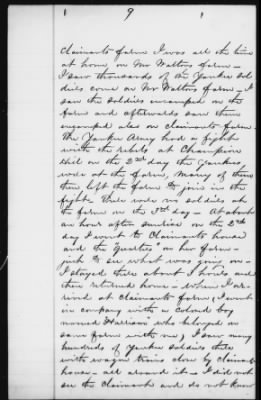 9
Claimants farm I was all the time
at home on Mr Waltons farm —
I saw thousands of the Yankee sol
diers come on Mr Waltons farm — I
saw the soldiers encamped on the
farm and afterwards saw them
encamped also on claimants farm
The Yankee Army had a fight
with the rebels at Champion
Hill on the 2nd day the Yankees
were at the farm, many of them
then left the farm to join in the
fight. There were no soldiers at
the farm on the 3rd day — At about
an hour after sunrise on the 2nd
day I went to Claimants house
and the "quarters" on her farm —
just to see what was going on —
I stayed there about 2 hours and
then returned home — When I ar-
rived at claimants farm, (I went
in company with a colored boy
named Harrison who belonged on
same farm with me) I saw many
hundreds of Yankee soldiers there
with wagon trains close by claimants
house — all around it — I did not
see the claimant and do not know